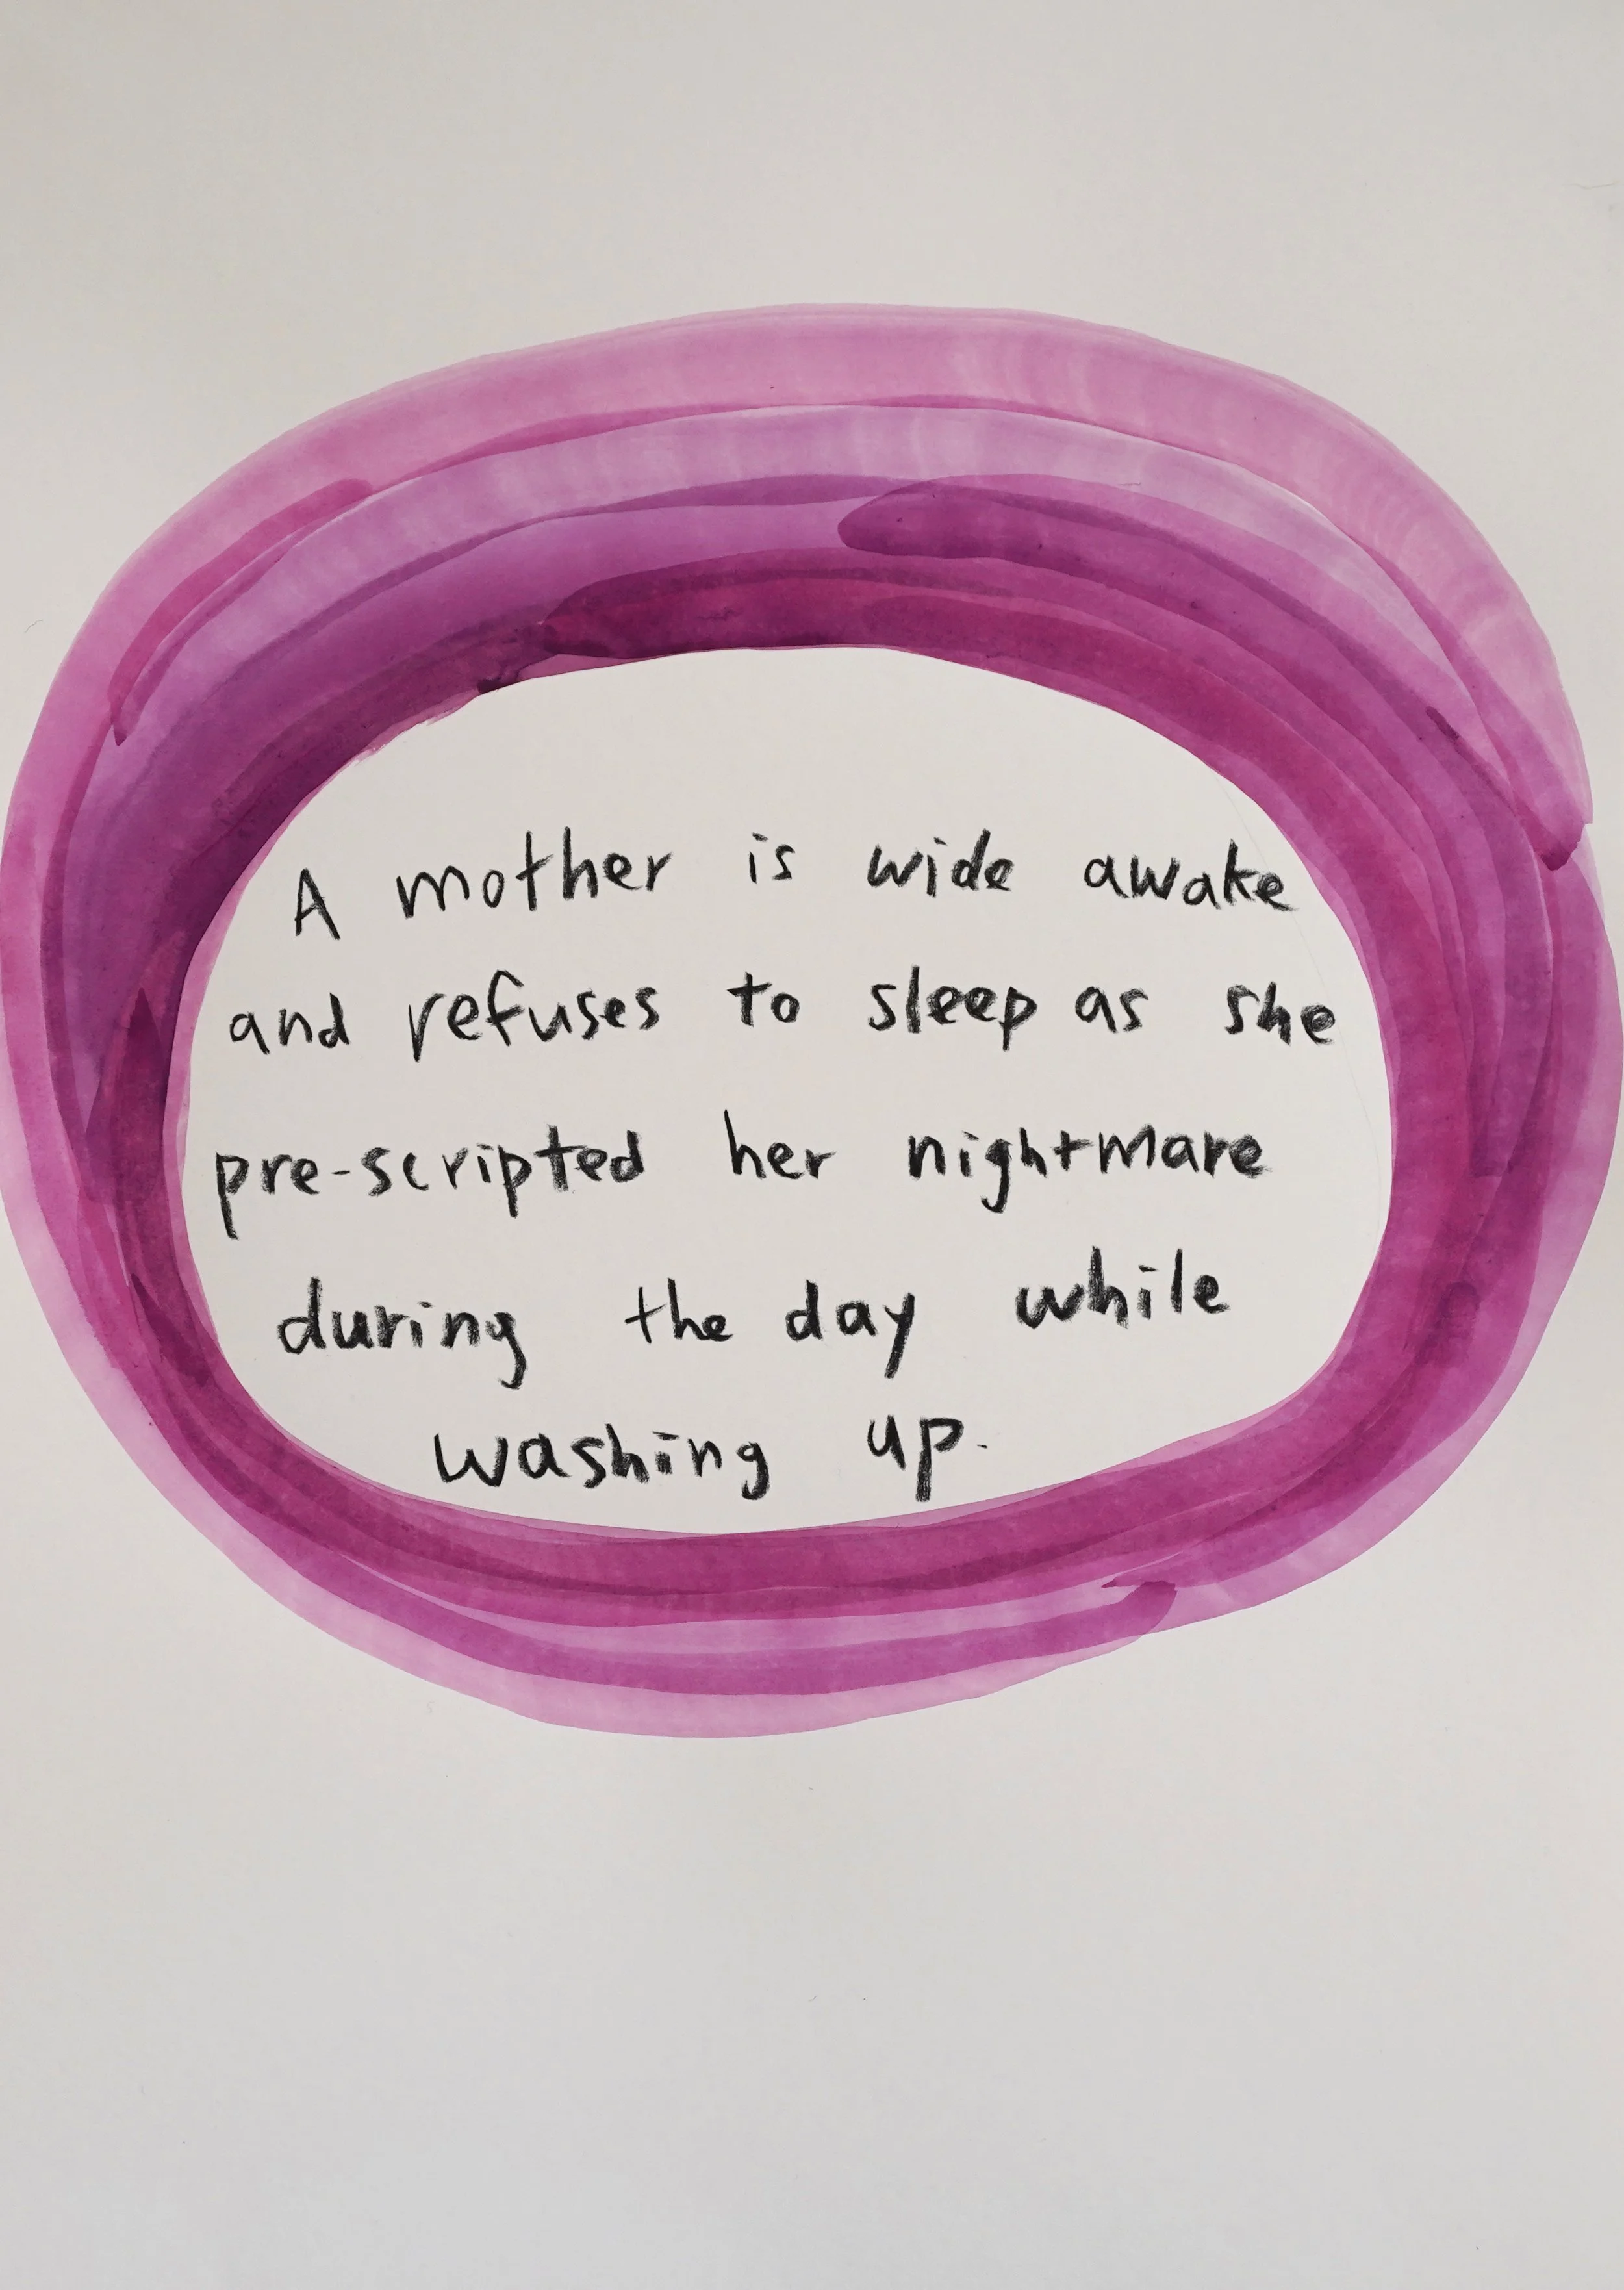 A mother is wide awake
and refuses to sleep as she
pre-scripted her nightmare
during the day while
washing up.